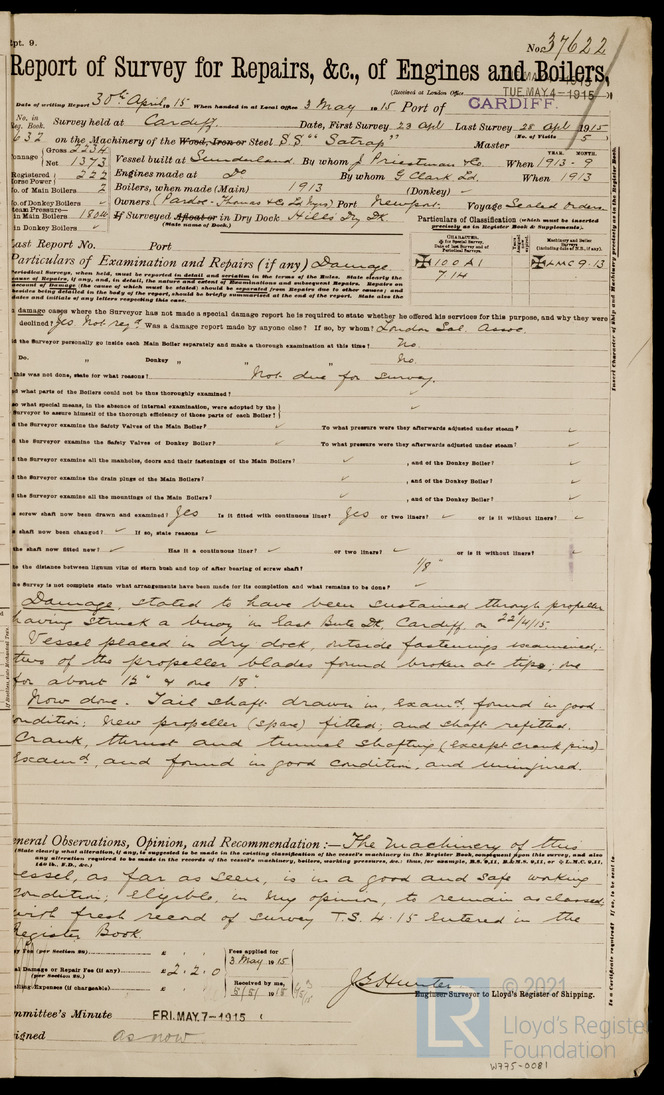 Rpt. 9.
No. 37622
Report of Survey for Repairs, &c., of Engines and Boilers,
(Received at London Office TUE. MAY. 4-1915)
Date of writing Report 30th April 1915 When handed in at Local Office 3 May 1915 Port of CARDIFF.
No. in Reg. Book.
632
Survey held at Cardiff. Date, First Survey 23 Apl Last Survey 28 Apl 1915
(No. of Visits 5)
on the Machinery of the Wood, Iron or Steel S.S. "Satrap" Master
Tonnage Gross 2234
Net 1373
Vessel built at Sunderland. By whom J. Priestman & Co. When 1913-9
YEAR. MONTH.
Registered Horse Power 222
Engines made at Do By whom G Clark Ld. When 1913
No. of Main Boilers 2
Boilers, when made (Main) 1913 (Donkey) ✓
No. of Donkey Boilers ✓
Owners (Pardoe-Thomas & Co Ld Mgrs) Port Newport. Voyage Sealed Orders
Steam Pressure in Main Boilers 180 lb
in Donkey Boilers ✓
If Surveyed Afloat or in Dry Dock Hills Dry Dk.
(State name of Dock.)
Particulars of Classification (which must be inserted precisely as in Register Book & Supplements).
Last Report No. Port
Particulars of Examination and Repairs (if any) Damage.
100 A1
7.14
LMC 9.13
Periodical Surveys, when held, must be reported in detail and seriatim in the terms of the Rules. State clearly the
dates and initials of any letters respecting this case.
In damage cases where the Surveyor has not made a special damage report he is required to state whether he offered his services for this purpose, and why they were
declined? Yes Not reqd. Was a damage report made by anyone else? If so, by whom? London Sal. Assoc.
Did the Surveyor personally go inside each Main Boiler separately and make a thorough examination at this time? No.
Do. " Donkey " " " No.
If this was not done, state for what reasons? Not due for survey.
And what parts of the Boilers could not be thus thoroughly examined? ✓
Also what special means, in the absence of internal examination, were adopted by the
Surveyor to assure himself of the thorough efficiency of those parts of each Boiler? ✓
Did the Surveyor examine the Safety Valves of the Main Boiler? ✓ To what pressure were they afterwards adjusted under steam? ✓
Did the Surveyor examine the Safety Valves of Donkey Boiler? ✓ To what pressure were they afterwards adjusted under steam? ✓
Did the Surveyor examine all the manholes, doors and their fastenings of the Main Boilers? ✓ , and of the Donkey Boiler? ✓
Did the Surveyor examine the drain plugs of the Main Boilers? ✓ , and of the Donkey Boiler? ✓
Did the Surveyor examine all the mountings of the Main Boilers? ✓ , and of the Donkey Boiler? ✓
screw shaft now been drawn and examined? Yes Is it fitted with continuous liner? Yes or two liners? ✓ or is it without liners? ✓
shaft now been changed? ✓ If so, state reasons ✓
the shaft now fitted new? ✓ Has it a continuous liner? ✓ or two liners? ✓ or is it without liners? ✓
the distance between lignum vitæ of stern bush and top of after bearing of screw shaft? 1/8"
the Survey is not complete state what arrangements have been made for its completion and what remains to be done? ✓
Damage, stated to have been sustained through propeller
having struck a buoy in East Bute Dk, Cardiff, on 22/4/15.
Vessel placed in dry dock, outside fastenings examined;
two of the propeller blades found broken at tips; one
for about 12" & one 18"
Now done. Tail shaft drawn in, examd found in good
condition; New propeller (spare) fitted; and shaft refitted.
Crank, thrust and tunnel shafting (except crank pins)
examd, and found in good condition, and uninjured.
General Observations, Opinion, and Recommendation :— The machinery of this
(State clearly what alteration, if any, is suggested to be made in the existing classification of the vessel's machinery in the Register Book, consequent upon this survey, and also
any alteration required to be made in the records of the vessel's machinery, boilers, working pressures, &c.: thus, for example, B.S. 9,11, B.&M.S. 9,11, or LMC 9.11,
140 lb., F.D., &c.)
vessel, as far as seen, is in a good and safe working
condition; eligible, in my opinion, to remain as classed,
with fresh record of survey T.S. 4.15 entered in the
Register Book.
Survey Fee (per Section 28) £ : :
Special Damage or Repair Fee (if any) £2.2.0
(per Section 28.)
Travelling Expenses (if chargeable) £ : :
Fees applied for
3 May 1915
Received by me,
5/5/1915
J G Hunter
Engineer Surveyor to Lloyd's Register of Shipping.
Committee's Minute FRI. MAY. 7-1915
Assigned as now
© 2021
LR
Lloyd's Register
Foundation
W775-0081